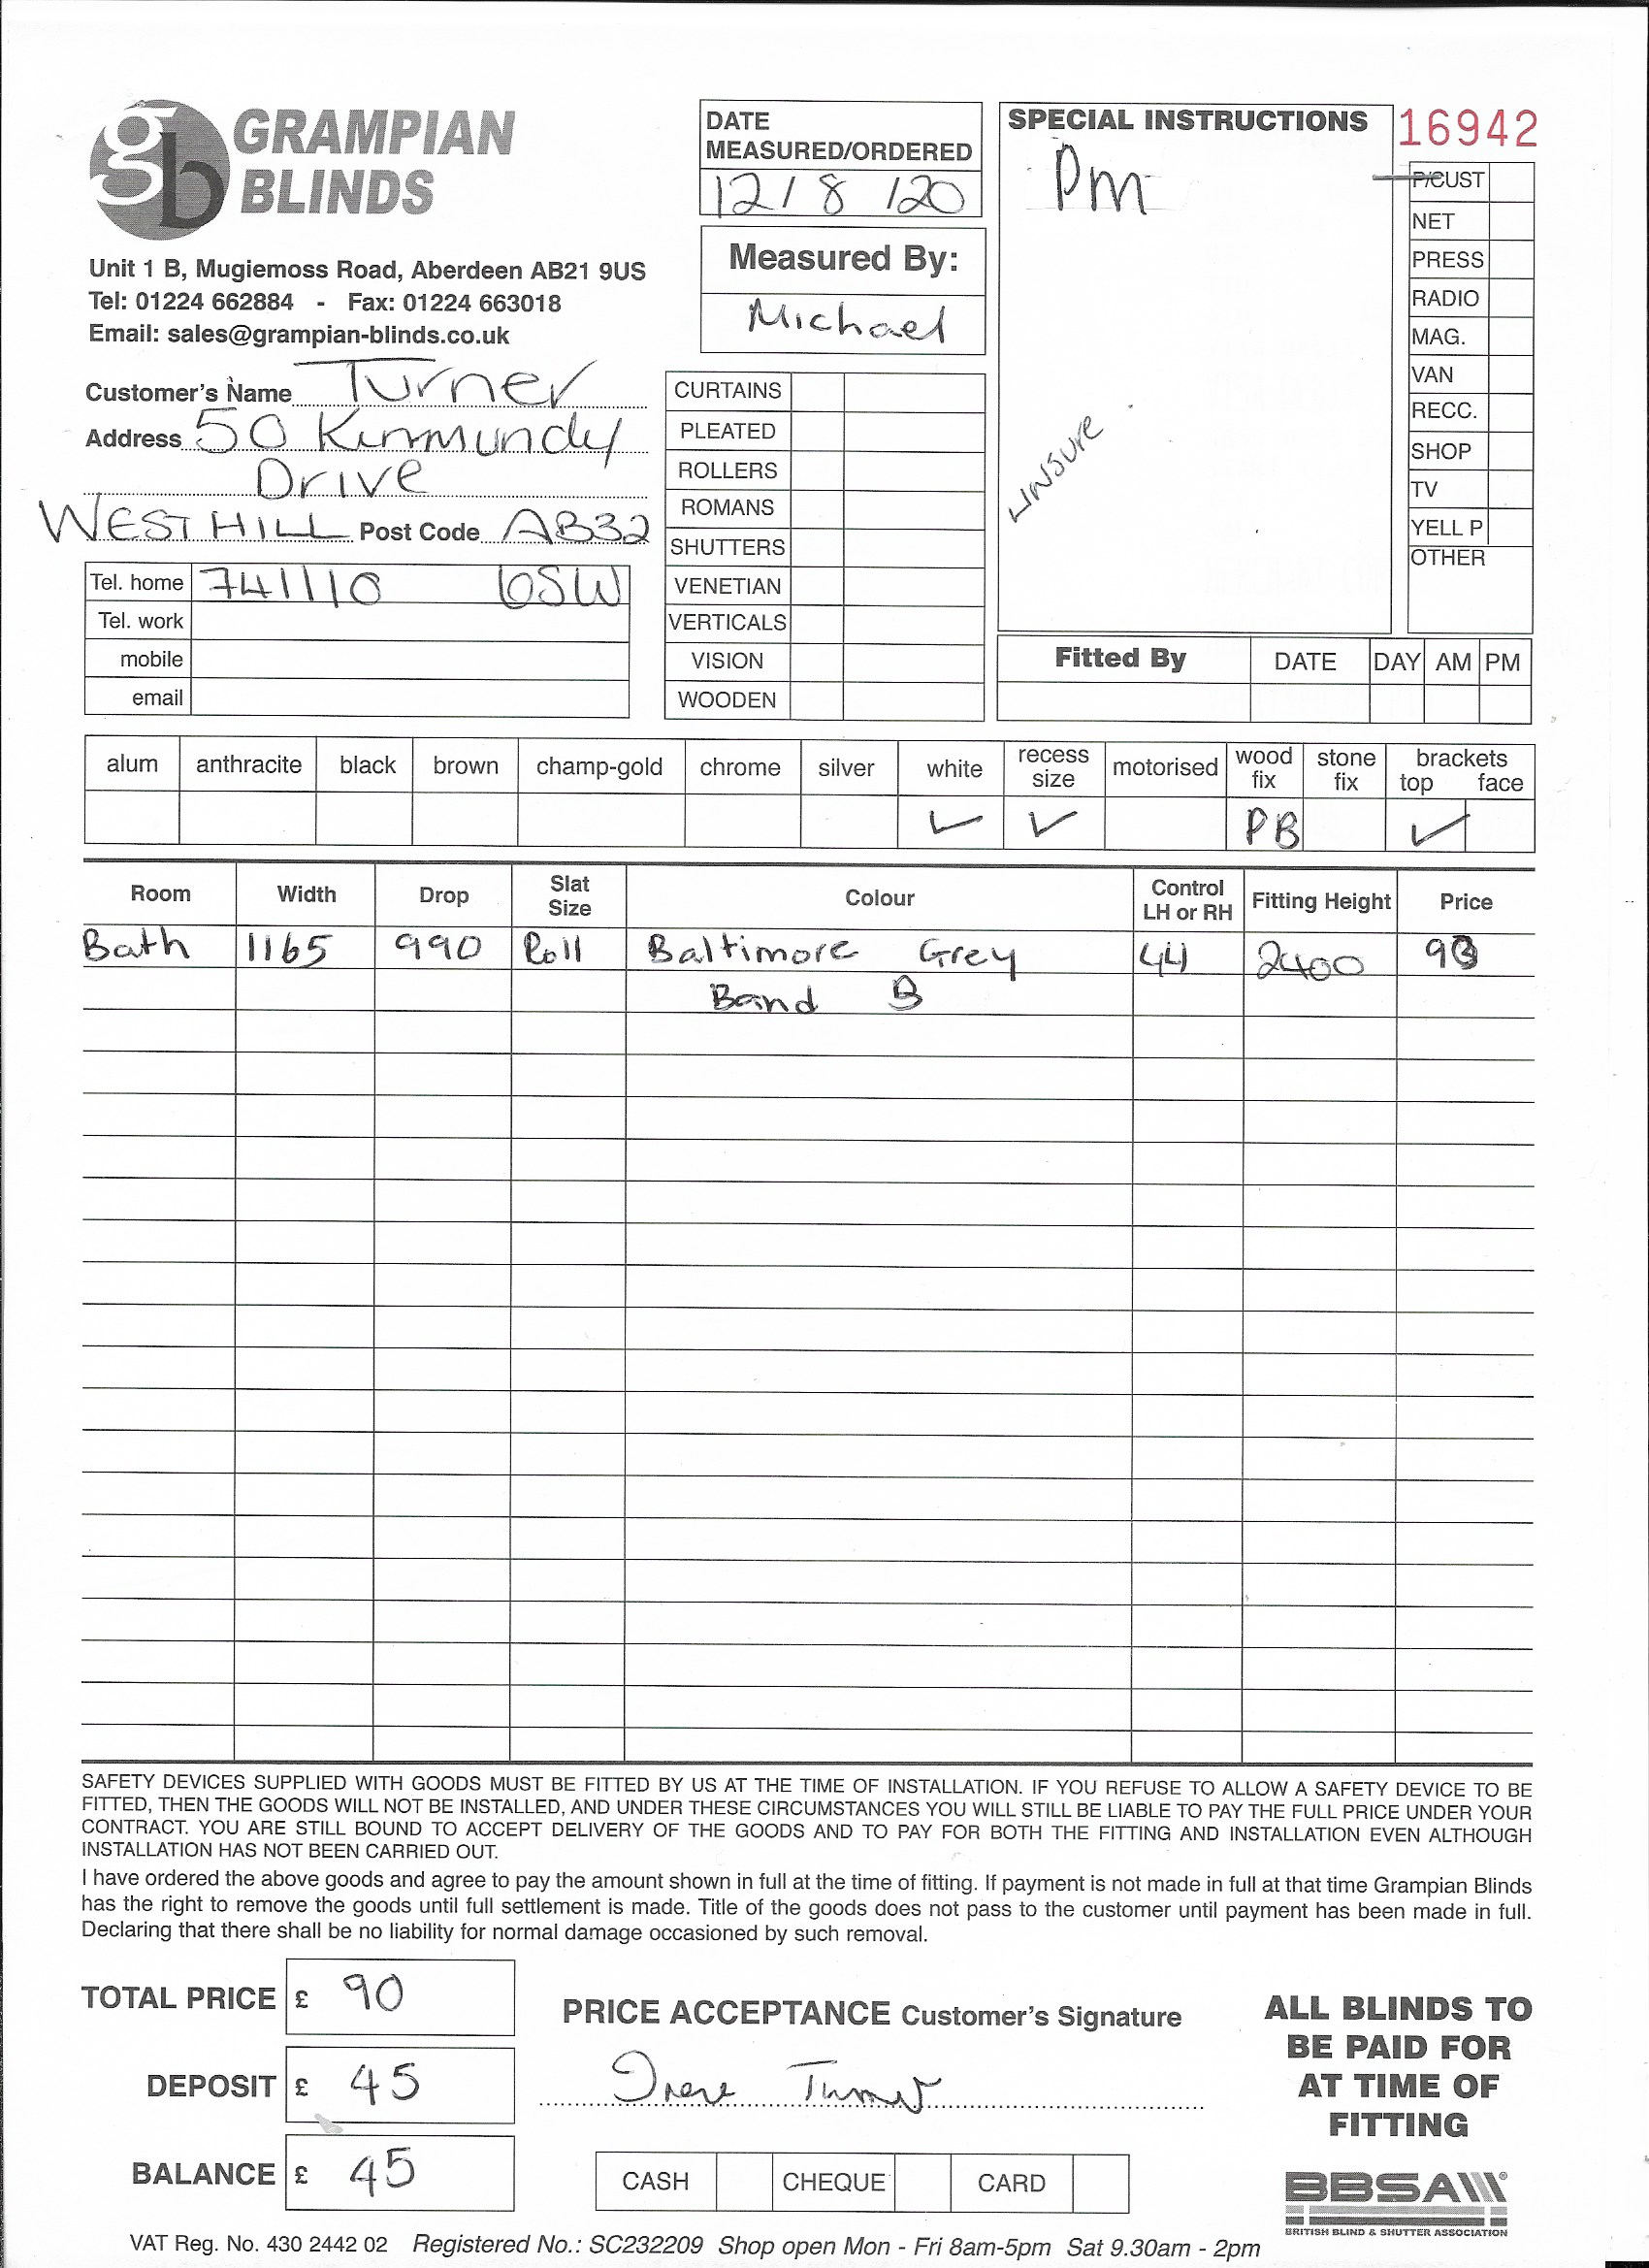 gb GRAMPIAN
BLINDS
Unit 1 B, Mugiemoss Road, Aberdeen AB21 9US
Tel: 01224 662884 - Fax: 01224 663018
Email: sales@grampian-blinds.co.uk
DATE
MEASURED/ORDERED
12/8/20
Measured By:
Michael
SPECIAL INSTRUCTIONS
Pm
unsure
16942
P/CUST
NET
PRESS
RADIO
MAG.
VAN
RECC.
SHOP
TV
YELL P
OTHER
Customer's Name Turner
Address 50 Kinmundy
Drive
WESTHILL Post Code AB32
Tel. home 741110 6SW
Tel. work
mobile
email
CURTAINS
PLEATED
ROLLERS
ROMANS
SHUTTERS
VENETIAN
VERTICALS
VISION
WOODEN
Fitted By DATE DAY AM PM
alum anthracite black brown champ-gold chrome silver white recess size motorised wood fix stone fix brackets top face
✓ ✓ PB ✓
Room Width Drop Slat Size Colour Control LH or RH Fitting Height Price
Bath 1165 990 Roll Baltimore Grey 44 2400 90
Band B
SAFETY DEVICES SUPPLIED WITH GOODS MUST BE FITTED BY US AT THE TIME OF INSTALLATION. IF YOU REFUSE TO ALLOW A SAFETY DEVICE TO BE
FITTED, THEN THE GOODS WILL NOT BE INSTALLED, AND UNDER THESE CIRCUMSTANCES YOU WILL STILL BE LIABLE TO PAY THE FULL PRICE UNDER YOUR
CONTRACT. YOU ARE STILL BOUND TO ACCEPT DELIVERY OF THE GOODS AND TO PAY FOR BOTH THE FITTING AND INSTALLATION EVEN ALTHOUGH
INSTALLATION HAS NOT BEEN CARRIED OUT.
I have ordered the above goods and agree to pay the amount shown in full at the time of fitting. If payment is not made in full at that time Grampian Blinds
has the right to remove the goods until full settlement is made. Title of the goods does not pass to the customer until payment has been made in full.
Declaring that there shall be no liability for normal damage occasioned by such removal.
TOTAL PRICE £ 90
DEPOSIT £ 45
BALANCE £ 45
PRICE ACCEPTANCE Customer's Signature
Irene Turner
CASH CHEQUE CARD
ALL BLINDS TO
BE PAID FOR
AT TIME OF
FITTING
BBSA
BRITISH BLIND & SHUTTER ASSOCIATION
VAT Reg. No. 430 2442 02 Registered No.: SC232209 Shop open Mon - Fri 8am-5pm Sat 9.30am - 2pm